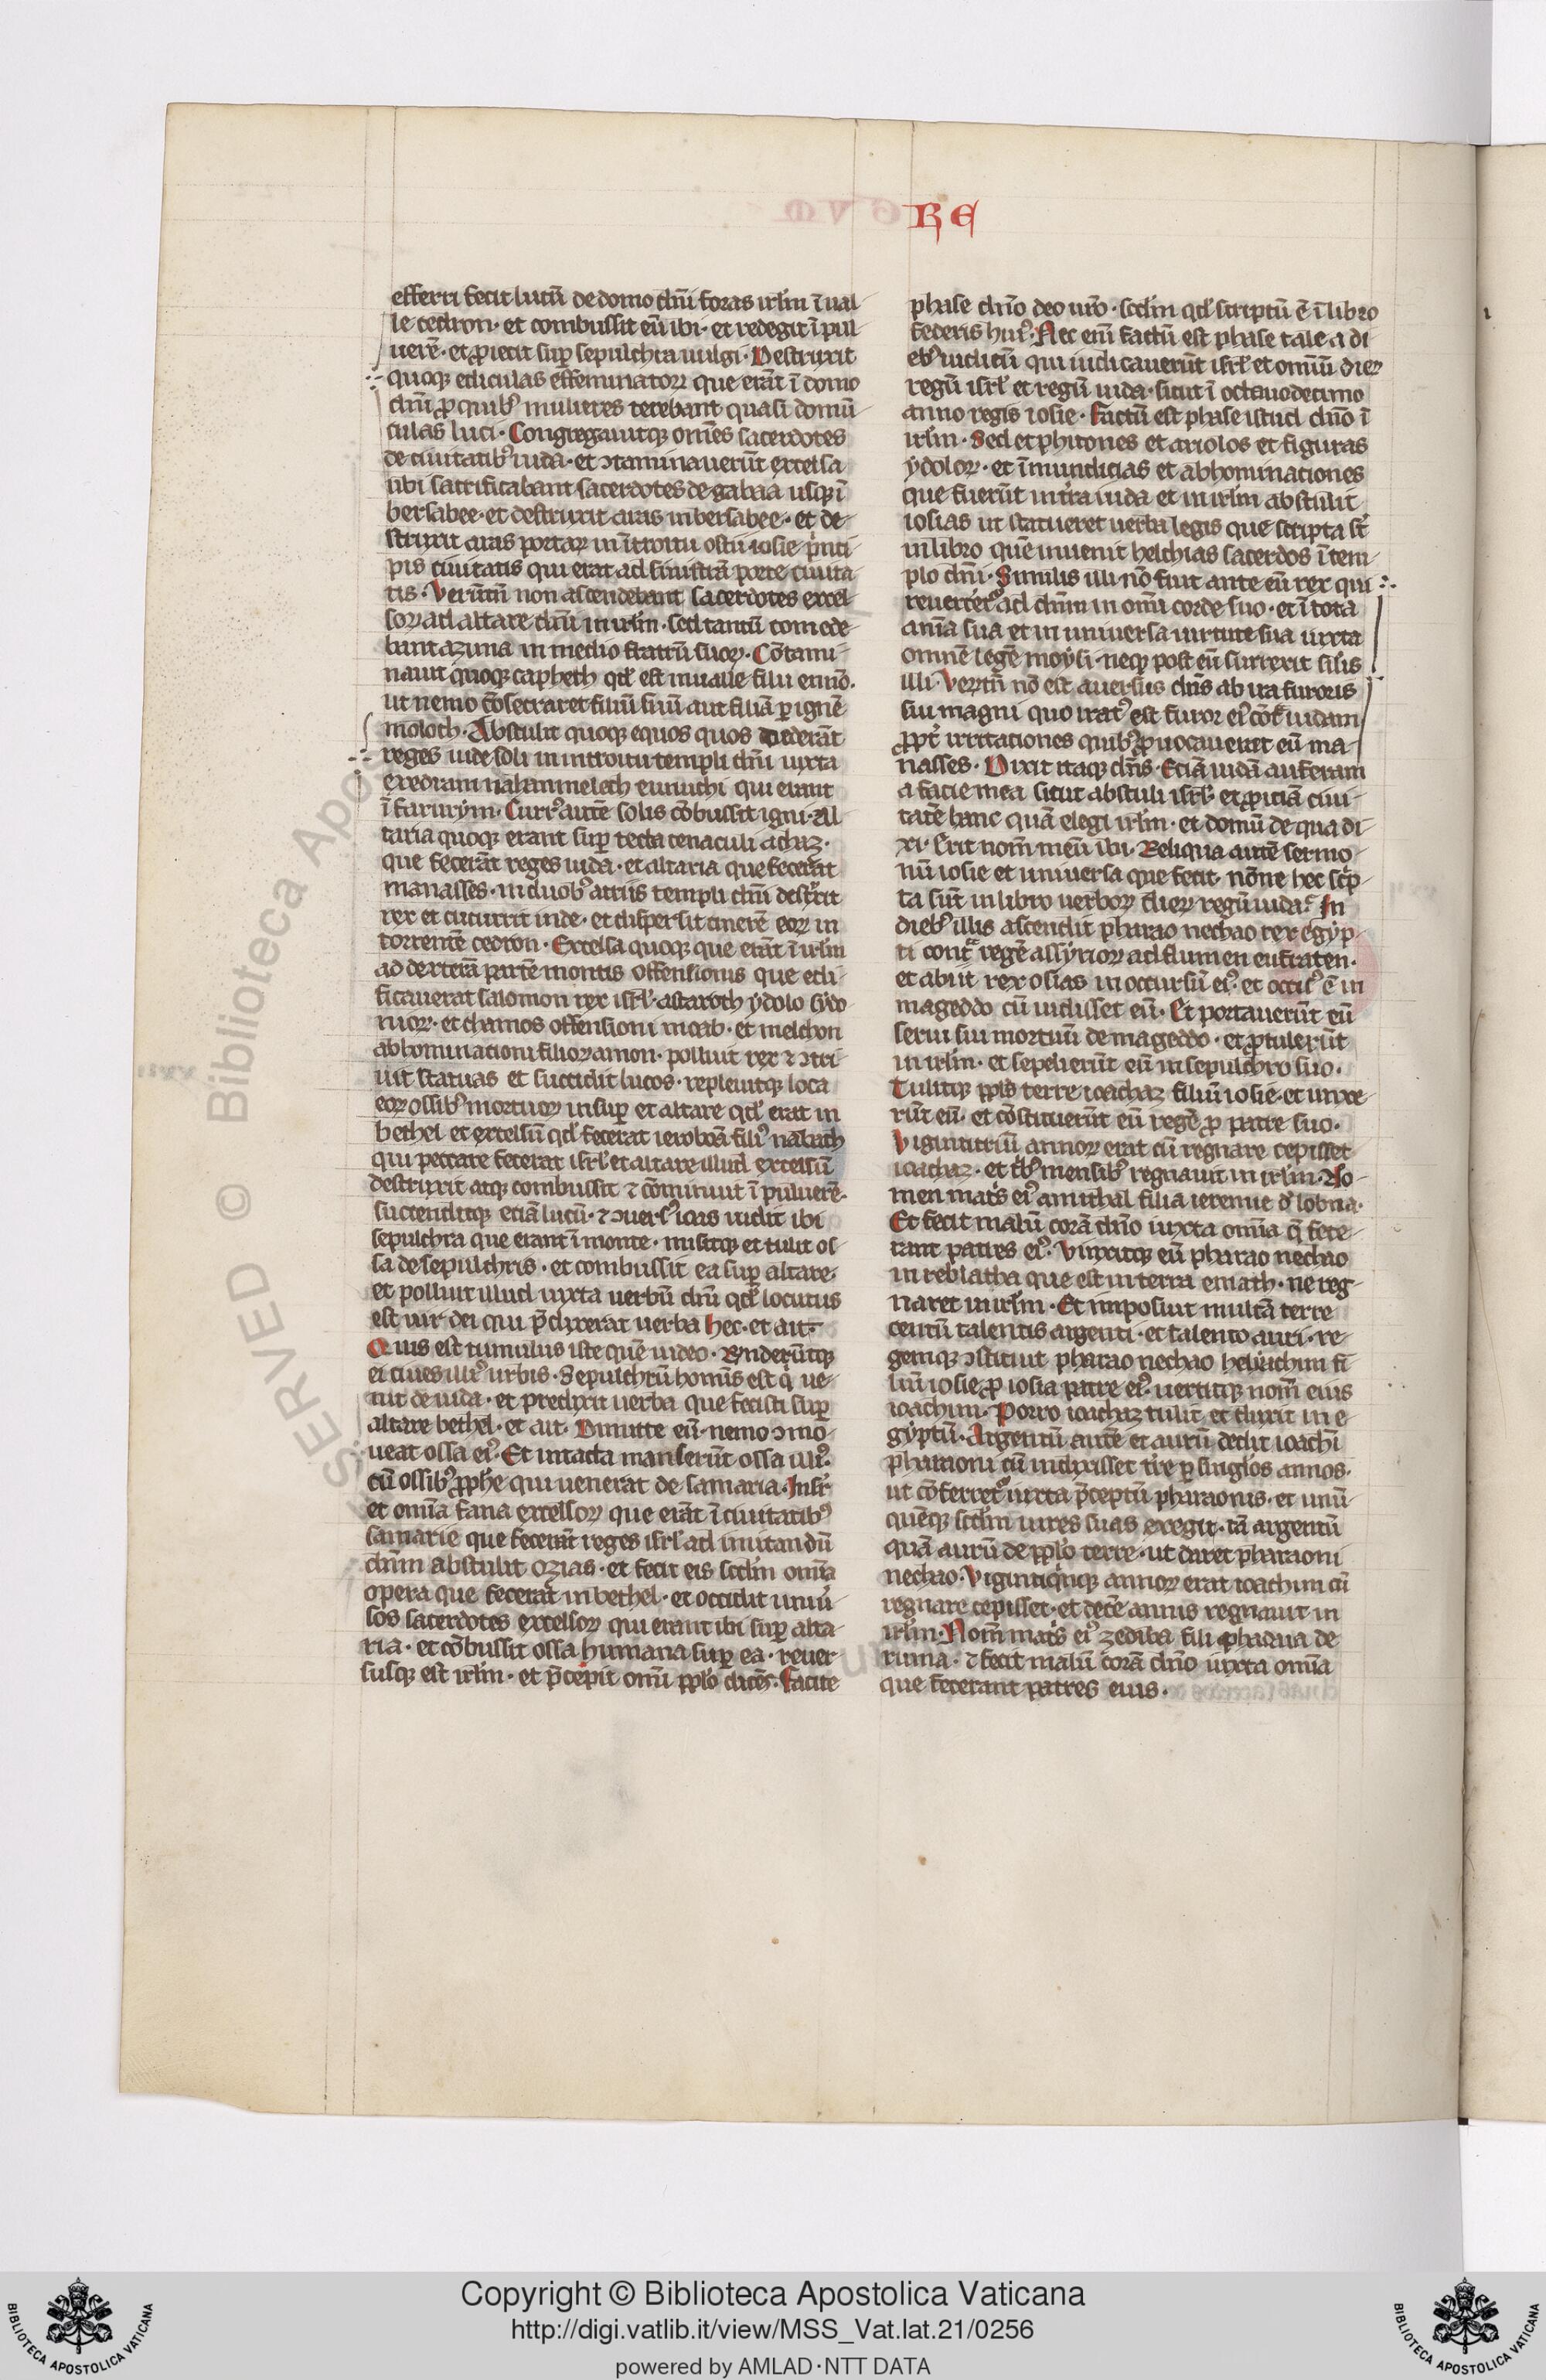 RE
efferri fecit lucū de domo dn̄i foras irl̄m ī ual
le cedron · et combussit eū ibi · et redegit ī pul
uerē · et ꝓiecit sup̄ sepulchra uulgi · Destruxit
quoqꝫ ediculas effeminatoꝝ que erāt ī domo
dn̄i ꝓ quibꝰ mulieres texebant quasi domū
culas luci · Congregauitqꝫ om̄es sacerdotes
de ciuitatibꝰ iuda · et ꝯtaminauerūt excelsa
ubi sacrificabant sacerdotes de gabaa usqꝫ ī
bersabee · et destruxit aras in bersabee · et de
struxit aras portaꝝ in ītroitu ostii iosie p̄nci
pis ciuitatis qui erat ad sinistrā porte ciuita
tis · Verūtn̄ non ascendebant sacerdotes excel
soꝝ ad altare dn̄i in irl̄m · sed tantū comede
bant azima in medio fratrū suoꝝ · Cōtami
nauit quoqꝫ tapheth qd̄ est in ualle filii ennō ·
ut nemo cōsecraret filiū suū aut filiā ꝑ ignē
moloch · Abstulit quoqꝫ equos quos dederāt
reges iude soli in introitu templi dn̄i iuxta
exedram nathanmelech eunuchi qui erant
ī farurym · Currꝰ autē solis cōbussit igni · Al
taria quoqꝫ erant sup̄ tecta cenaculi achaz ·
que fecerāt reges iuda · et altaria que fecerat
manasses · in duobꝰ atriis templi dn̄i destrūxit
rex et cucurrit inde · et dispersit cinerē eoꝝ in
torrentē cedron · Excelsa quoqꝫ que erāt ī irl̄m
ad dexterā partē montis offensionis que edi
ficauerat salomon rex isrl̄ · astaroth ydolo sydo
nioꝝ · et chamos offensioni moab · et melchon
abhominationi filioꝝ amon · polluit rex ⁊ ꝯtri
uit statuas et succidit lucos · repleuitqꝫ loca
eoꝝ ossibꝰ mortuoꝝ insup̄ et altare qd̄ erat in
bethel et excelsū qd̄ fecerat ieroboā filiꝰ nabath
qui peccare fecerat isrl̄ et altare illud excelsū
destruxit atqꝫ combussit ⁊ cōminuit ī puluerē ·
succenditqꝫ etiā lucū · ⁊ ꝯuersꝰ ioas uidit ibi
sepulchra que erant ī monte · misitqꝫ et tulit os
sa de sepulchris · et combussit ea sup̄ altare ·
et polluit illud iuxta uerbū dn̄i qd̄ locutus
est uir dei qui p̄dixerat uerba hec · et ait ·
Quis est tumulus iste quē uideo · Rn̄derūtqꝫ
ei ciues illiꝰ urbis · Sepulchrū homīs est q̇ ue
nit de iuda · et predixit uerba que fecisti sup̄
altare bethel · et ait · Dimitte eū · nemo ꝯmo
ueat ossa eiꝰ · Et intacta manserūt ossa illiꝰ ·
cū ossibꝰ ꝓphe qui uenerat de samaria · Insr̄
et omīa fana excelsoꝝ que erāt ī ciuitatibꝰ
samarie que fecerāt reges isrl̄ ad irritandū
dn̄m abstulit ozias · et fecit eis scd̄m omīa
opera que fecerat in bethel · et occidit uniū
sos sacerdotes excelsoꝝ qui erant ibi sup̄ alta
ria · et cōbussit ossa humana sup̄ ea · reuer
susqꝫ est irl̄m · et p̄cepit omī ppl̄o dicēs · Facite
phase dn̄o deo ur̄o · scd̄m qd̄ scriptū ē ī libro
federis huiꝰ · Nec enī factū est phase tale a di
ebꝰ iudicū qui iudicauerūt isrl̄ et omīū dieꝝ
regū isrl̄ et regū iuda · sicut ī octauodecimo
anno regis iosie · Factū est phase istud dn̄o ī
irl̄m · Sed et phitones et ariolos et figuras
ydoloꝝ · et īmundicias et abhominationes
que fuerūt in tr̄a iuda et in irl̄m abstulit
iosias ut statueret uerba legis que scripta st̄
in libro quē inuenit helchias sacerdos ī tem
plo dn̄i · Similis illi nō fuit ante eū rex qui
reuerteretꝰ ad dn̄m in omī corde suo · et ī tota
anīa sua et in uniuersa uirtute sua iuxta
omnē legē moysi · neqꝫ post eū surrexit sil̄is
illi · Veꝝtn̄ nō est auersus dn̄s ab ira furoris
sui magni quo iratꝰ est furor eiꝰ cōt̄ iudam
ꝓpt̄ irritationes quibꝰ ꝓuocauerat eū ma
nasses · Dixit itaqꝫ dn̄s · Etiā iudā auferam
a facie mea sicut abstuli isrl̄ · et ꝓiciā ciui
tatē hanc quā elegi irl̄m · et domū de qua di
xi · Erit nom̄ meū ibi · Reliqua autē sermo
nū iosie et uniuersa que fecit nōne hec sc̄p
ta sūt in libro uerboꝝ dieꝝ regū iuda · In
diebꝰ illis ascendit pharao nechao rex egyp
ti cont̄ regē assyrioꝝ ad flumen eufraten ·
et abiit rex osias in occursū eiꝰ · et occisꝰ ē in
mageddo cū uidisset eū · Et portauerūt eū
serui sui mortuū de mageddo · et ꝓtulerūt
in irl̄m · et sepelierūt eū in sepulchro suo ·
Tulitqꝫ ppl̄s terre ioachaz filiū iosie · et unxe
rūt eū · et cōstituerūt eū regē ꝓ patre suo ·
Vigintitriū annoꝝ erat cū regnare cepisset
ioachaz · et tb̄ꝰ mensibꝰ regnauit in irl̄m · No
men mat̄s eiꝰ amithal filia ieremie d̄ lobna ·
Et fecit malū corā dn̄o iuxta omīa q̄ fece
rant patres eiꝰ · Vinxitqꝫ eū pharao nechao
in reblatha que est in terra emath · ne reg
naret in irl̄m · Et imposuit multā terre
centū talentis argenti · et talento auri · re
gemqꝫ ꝯstituit pharao nechao helyachim fi
liū iosie ꝓ iosia patre eiꝰ · uertitqꝫ nom̄ eius
ioachim · Porro ioachaz tulit et duxit in e
gyptū · Argentū autē et aurū dedit ioachī
pharaoni cū indixisset tr̄e ꝑ singl̄os annos ·
ut cōferretꝰ iuxta p̄ceptū pharaonis · et unū
quēqꝫ scd̄m uires suas exegit · tā argentū
quā aurū de ppl̄o terre · ut daret pharaoni
nechao · Vigintiqīnqꝫ annoꝝ erat ioachim cū
regnare cepisset · et decē annis regnauit in
irl̄m · Nom̄ mat̄s eiꝰ zediba fili phadaia de
ruma · ⁊ fecit malū corā dn̄o iuxta omīa
que fecerant patres eius ·
© Biblioteca Apo
SERVED
Copyright © Biblioteca Apostolica Vaticana
http://digi.vatlib.it/view/MSS_Vat.lat.21/0256
powered by AMLAD·NTT DATA
BIBLIOTECA APOSTOLICA VATICANA
BIBLIOTECA APOSTOLICA VATICANA